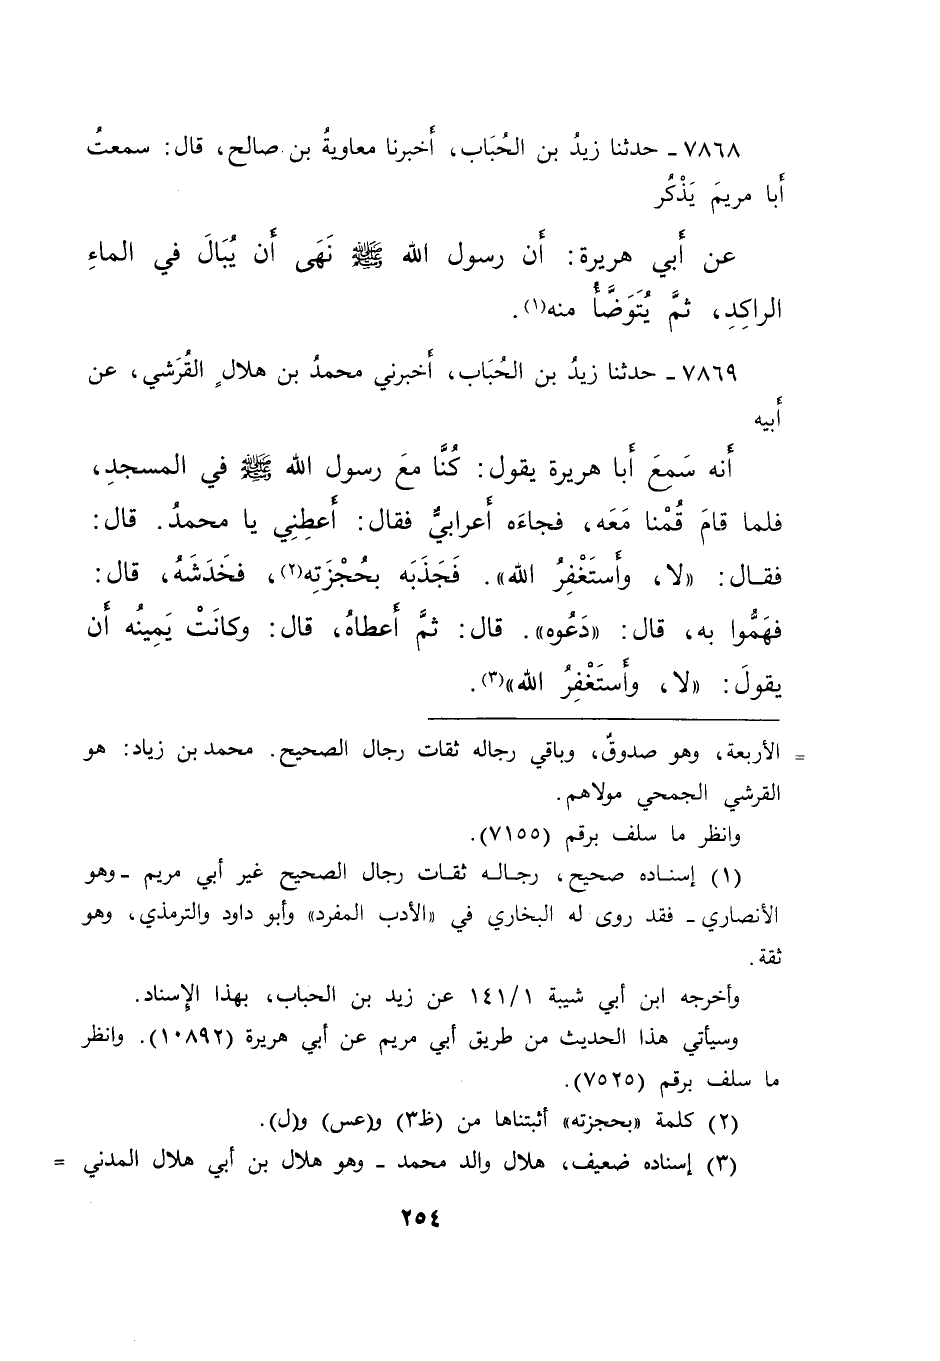 ٧٨٦٨ ـ حدثنا زيدُ بن الحُبَاب، أَخبرنا معاويةُ بن صالح، قال: سمعتُ
أَبا مريمَ يَذْكُر
عن أَبي هريرة: أَن رسول الله ﷺ نَهَى أَن يُبَالَ في الماءِ
الراكِدِ، ثمَّ يُتَوَضَّأُ منه(١).
٧٨٦٩ ـ حدثنا زيدُ بن الحُبَاب، أَخبرني محمدُ بن هلالٍ القُرَشي، عن
أَبيه
أَنه سَمِعَ أَبا هريرة يقول: كُنَّا معَ رسول الله ﷺ في المسجدِ،
فلما قامَ قُمْنا مَعَه، فجاءَه أَعرابيٌّ فقال: أَعطِنِي يا محمدُ. قال:
فقال: «لا، وأَستَغْفِرُ الله». فَجَذَبَه بحُجْزَتِه(٢)، فخَدَشَهُ، قال:
فهَمُّوا به، قال: «دَعُوه». قال: ثمَّ أَعطاهُ، قال: وكانَتْ يَمِينُه أَن
يقولَ: «لا، وأَستَغْفِرُ الله»(٣).
= الأربعة، وهو صدوقٌ، وباقي رجاله ثقات رجال الصحيح. محمد بن زياد: هو
القرشي الجمحي مولاهم.
وانظر ما سلف برقم (٧١٥٥).
(١) إسناده صحيح، رجاله ثقات رجال الصحيح غير أبي مريم ـ وهو
الأنصاري ـ فقد روى له البخاري في «الأدب المفرد» وأبو داود والترمذي، وهو
ثقة.
وأخرجه ابن أبي شيبة ١٤١/١ عن زيد بن الحباب، بهذا الإِسناد.
وسيأتي هذا الحديث من طريق أبي مريم عن أبي هريرة (١٠٨٩٢). وانظر
ما سلف برقم (٧٥٢٥).
(٢) كلمة «بحجزته» أثبتناها من (ظ٣) و(عس) و(ل).
(٣) إسناده ضعيف، هلال والد محمد ـ وهو هلال بن أبي هلال المدني =
٢٥٤